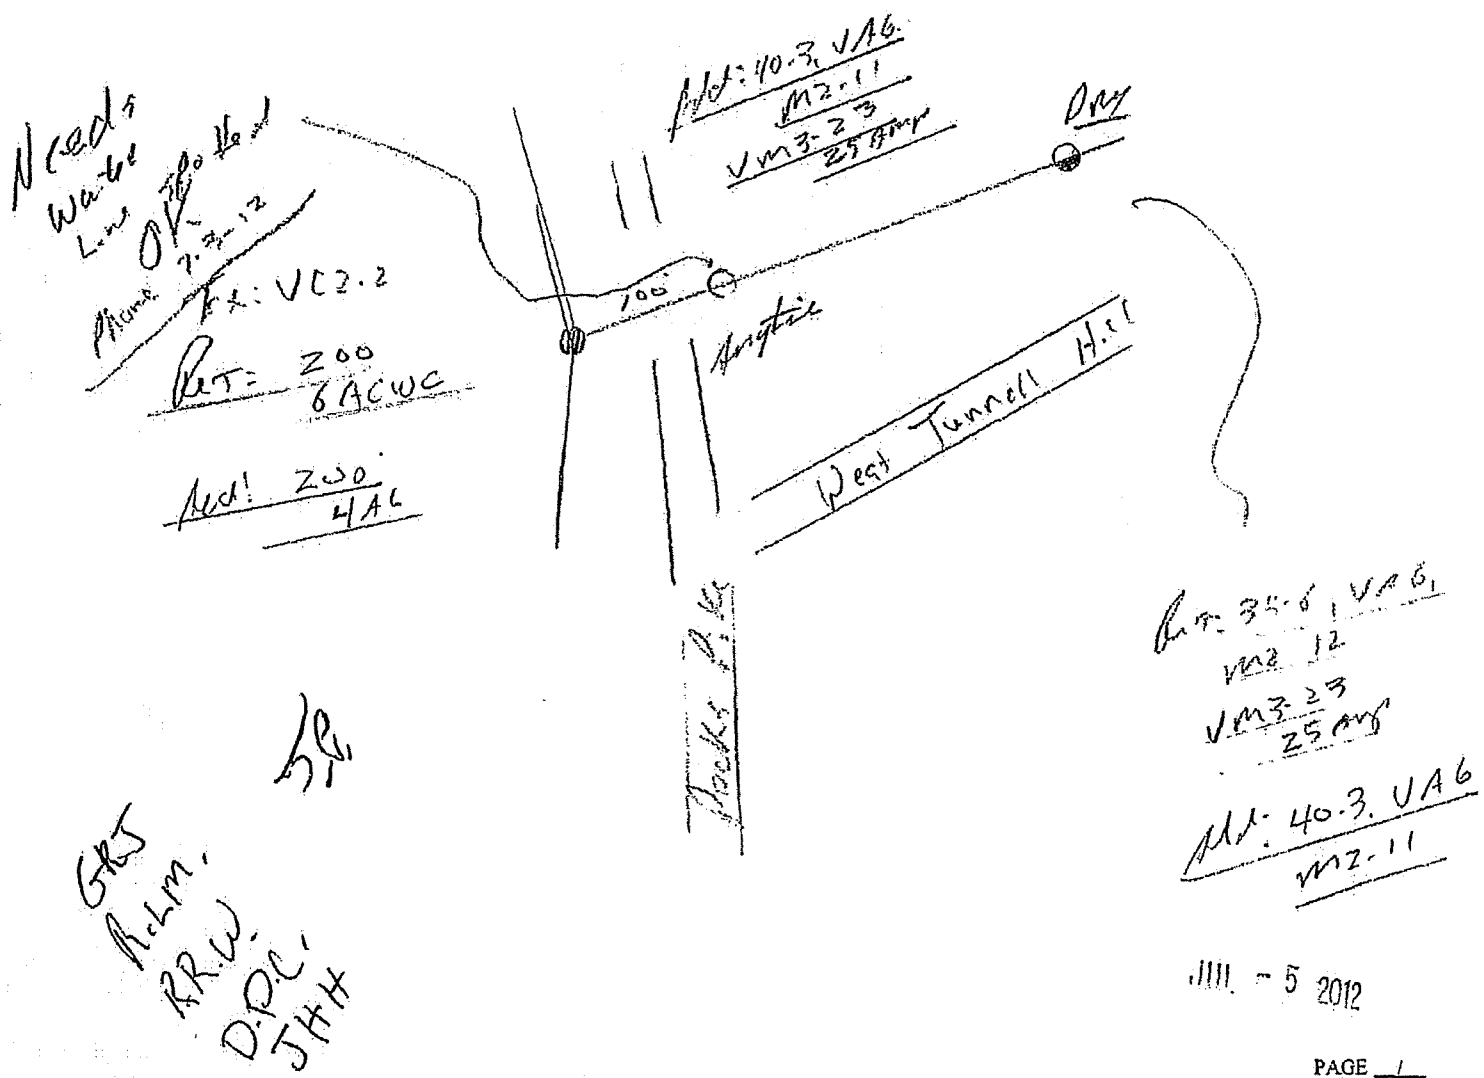 Needs
Water
Line Spotted
OK
Phone 7-3-12
Ex: VC2.2
Ret: 200'
6ACWC
Add: 200'
4AC
Add: 40-3, VA6.
M2-11
VM3-23
25 Amp
Dry
100'
West Tunnell Hill
Docks Pike
Ret: 35-6, VA6,
M2 12
VM3-23
25 Amp
Add: 40-3, VA6
M2-11
GRJ
R.L.M.
R.R.W.
D.P.C.
JHH
JUL - 5 2012
PAGE 1